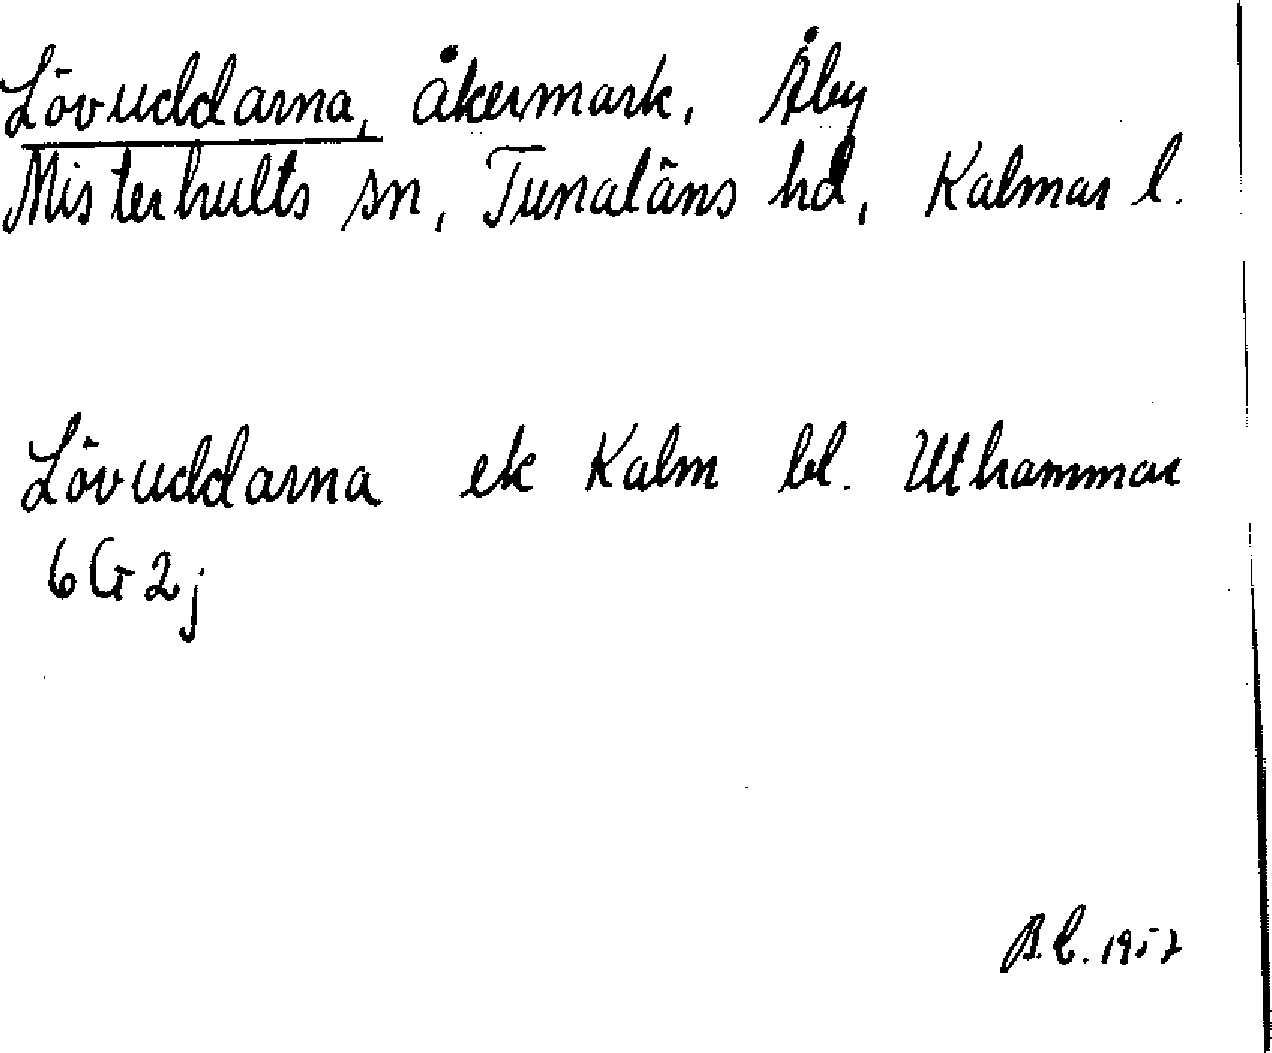 Lövuddarna, åkermark, Åby
Misterhults sn, Tunaläns hd, Kalmar l.
Lövuddarna ek Kalm bl. Uthammar
6 G 2 j
B.L. 1957